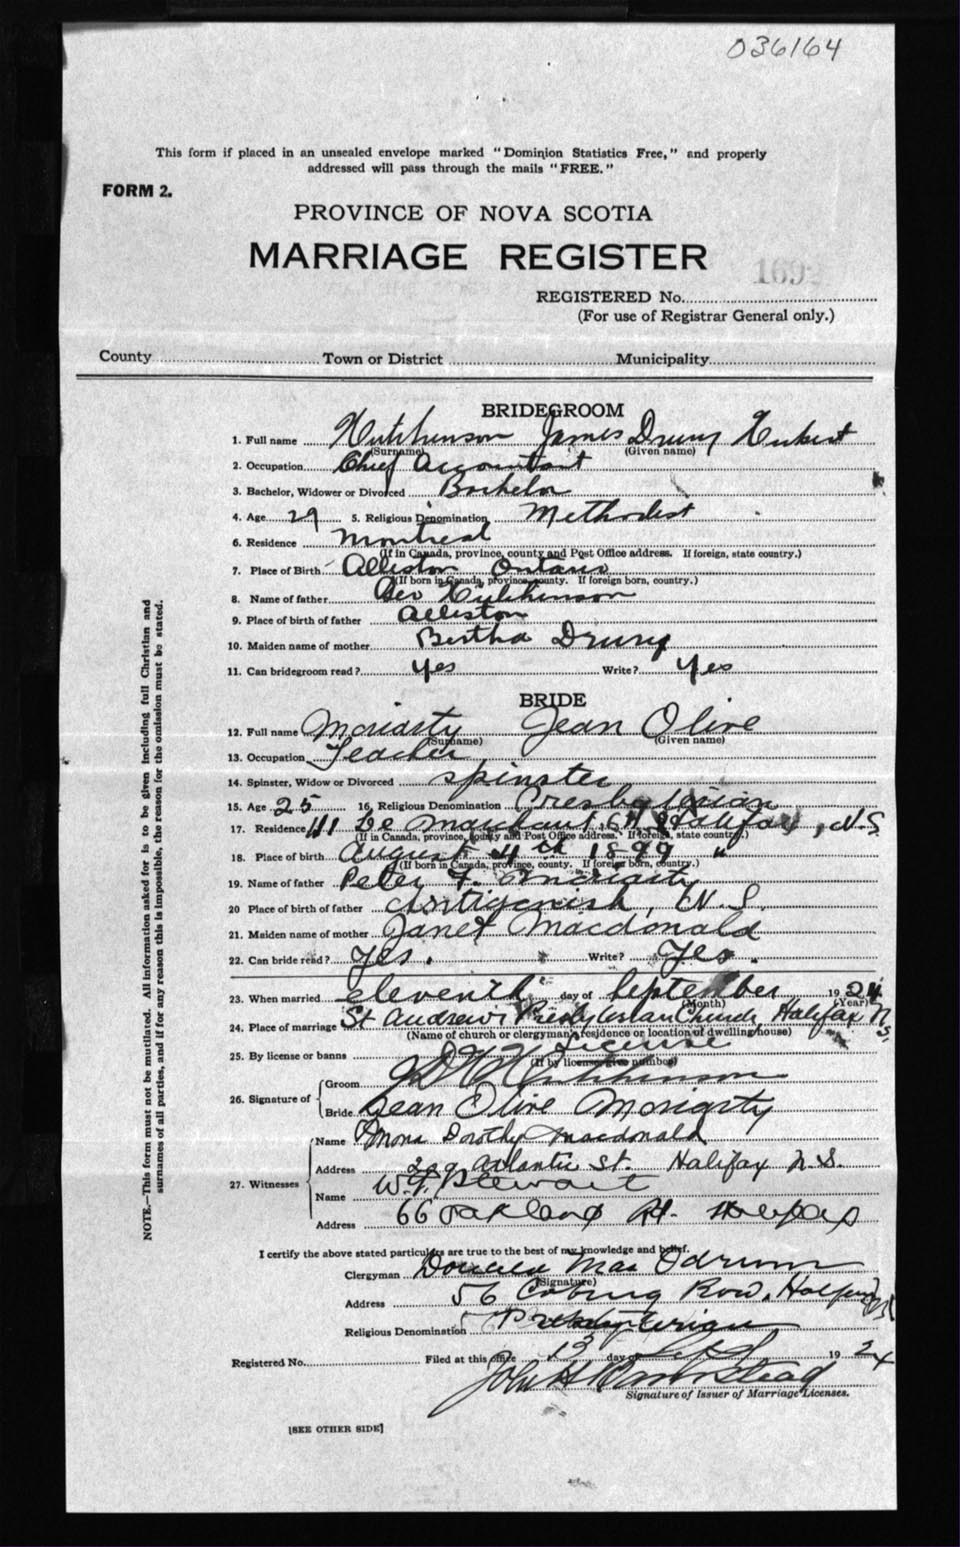 036164
This form if placed in an unsealed envelope marked "Dominion Statistics Free," and properly
addressed will pass through the mails "FREE."
FORM 2.
PROVINCE OF NOVA SCOTIA
MARRIAGE REGISTER
169
REGISTERED No.
(For use of Registrar General only.)
County Town or District Municipality
BRIDEGROOM
1. Full name Hutchinson James Drury Hubert
(Surname) (Given name)
2. Occupation Chief Accountant
3. Bachelor, Widower or Divorced Bachelor
4. Age 29 5. Religious Denomination Methodist
6. Residence Montreal
(If in Canada, province, county and Post Office address. If foreign, state country.)
7. Place of Birth Alliston Ontario
(If born in Canada, province, county. If foreign born, country.)
8. Name of father Geo Hutchinson
9. Place of birth of father Alliston
10. Maiden name of mother Bertha Drury
11. Can bridegroom read? Yes Write? Yes
BRIDE
12. Full name Moriarty Jean Olive
(Surname) (Given name)
13. Occupation Teacher
14. Spinster, Widow or Divorced spinster
15. Age 25 16. Religious Denomination Presbyterian
17. Residence 111 Le Marchant St Halifax, N.S.
(If in Canada, province, county and Post Office address. If foreign, state country.)
18. Place of birth August 4th 1899 "
(If born in Canada, province, county. If foreign born, country.)
19. Name of father Peter F. Moriarty
20 Place of birth of father Antigonish, N.S.
21. Maiden name of mother Janet Macdonald
22. Can bride read? Yes. Write? Yes.
23. When married eleventh day of September 1924
(Month) (Year)
24. Place of marriage St Andrew's Presbyterian Church, Halifax N.S.
(Name of church or clergyman's residence or location of dwelling house)
25. By license or banns License
(If by license give number)
26. Signature of
Groom J D H Hutchinson
Bride Jean Olive Moriarty
27. Witnesses
Name Mona Dorothy Macdonald
Address 299 Atlantic St. Halifax N.S.
Name W.F. Stewart
Address 66 Oakland Rd. Halifax
I certify the above stated particulars are true to the best of my knowledge and belief.
Clergyman Donald Mac Odrum
(Signature)
Address 56 Coburg Row, Halifax NS
Religious Denomination Presbyterian
Registered No. Filed at this office 13 day of Sept 1924
John H Barnstead
Signature of Issuer of Marriage Licenses.
[SEE OTHER SIDE]
NOTE.—This form must not be mutilated. All information asked for is to be given including full Christian and
surnames of all parties, and if for any reason this is impossible, the reason for the omission must be stated.